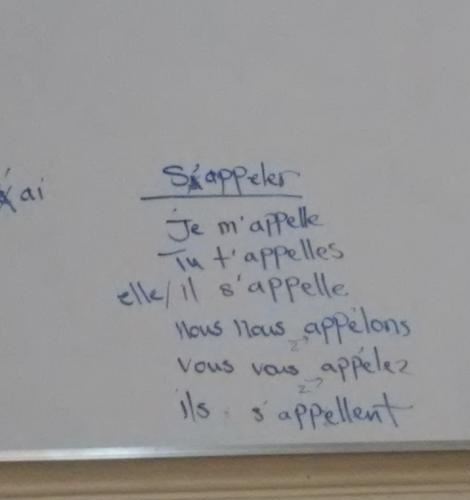 j'ai
S'appeler
Je m'appelle
Tu t'appelles
elle/il s'appelle
nous nous appélons
vous vous appélez
ils s'appellent